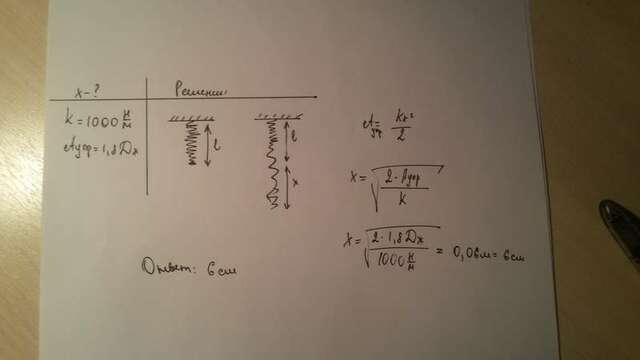 x-?
Решение:
k = 1000 Н/м
Aупр = 1,8 Дж
l
l
x
Aупр = kx²/2
x = √(2·Aупр/k)
x = √(2·1,8 Дж/1000 Н/м) = 0,06м = 6см
Ответ: 6 см